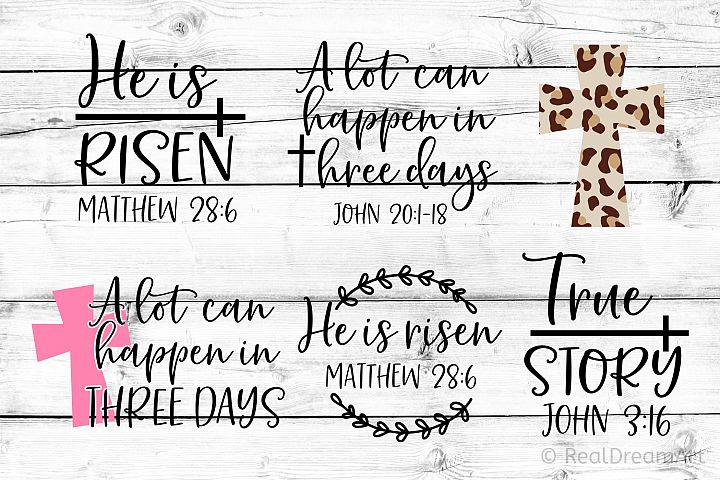 He is
RISEN
MATTHEW 28:6
A lot can
happen in
three days
JOHN 20:1-18
A lot can
happen in
THREE DAYS
He is risen
MATTHEW 28:6
True
STORY
JOHN 3:16
© RealDreamArt